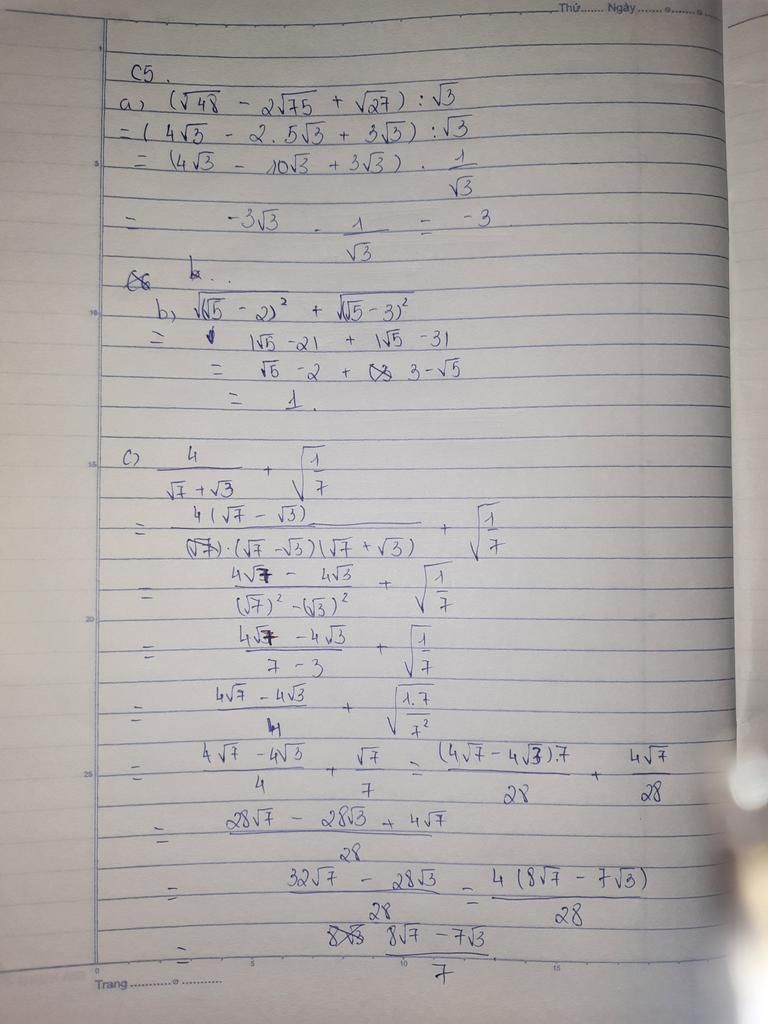 Thứ....... Ngày.......
C5.
a) (√48 - 2√75 + √27) : √3
= (4√3 - 2.5√3 + 3√3) : √3
= (4√3 - 10√3 + 3√3) . 1/√3
= -3√3 . 1/√3 = -3
b) √(√5 - 2)² + √(√5 - 3)²
= |√5 - 2| + |√5 - 3|
= √5 - 2 + 3 - √5
= 1.
c) 4/(√7 + √3) + √(1/7)
= 4(√7 - √3)/((√7 - √3)(√7 + √3)) + √(1/7)
= (4√7 - 4√3)/((√7)² - (√3)²) + √(1/7)
= (4√7 - 4√3)/(7 - 3) + √(1/7)
= (4√7 - 4√3)/4 + √(1.7/7²)
= (4√7 - 4√3)/4 + √7/7 = (4√7 - 4√3).7/28 + 4√7/28
= (28√7 - 28√3 + 4√7)/28
= (32√7 - 28√3)/28 = 4(8√7 - 7√3)/28
= (8√7 - 7√3)/7
Trang